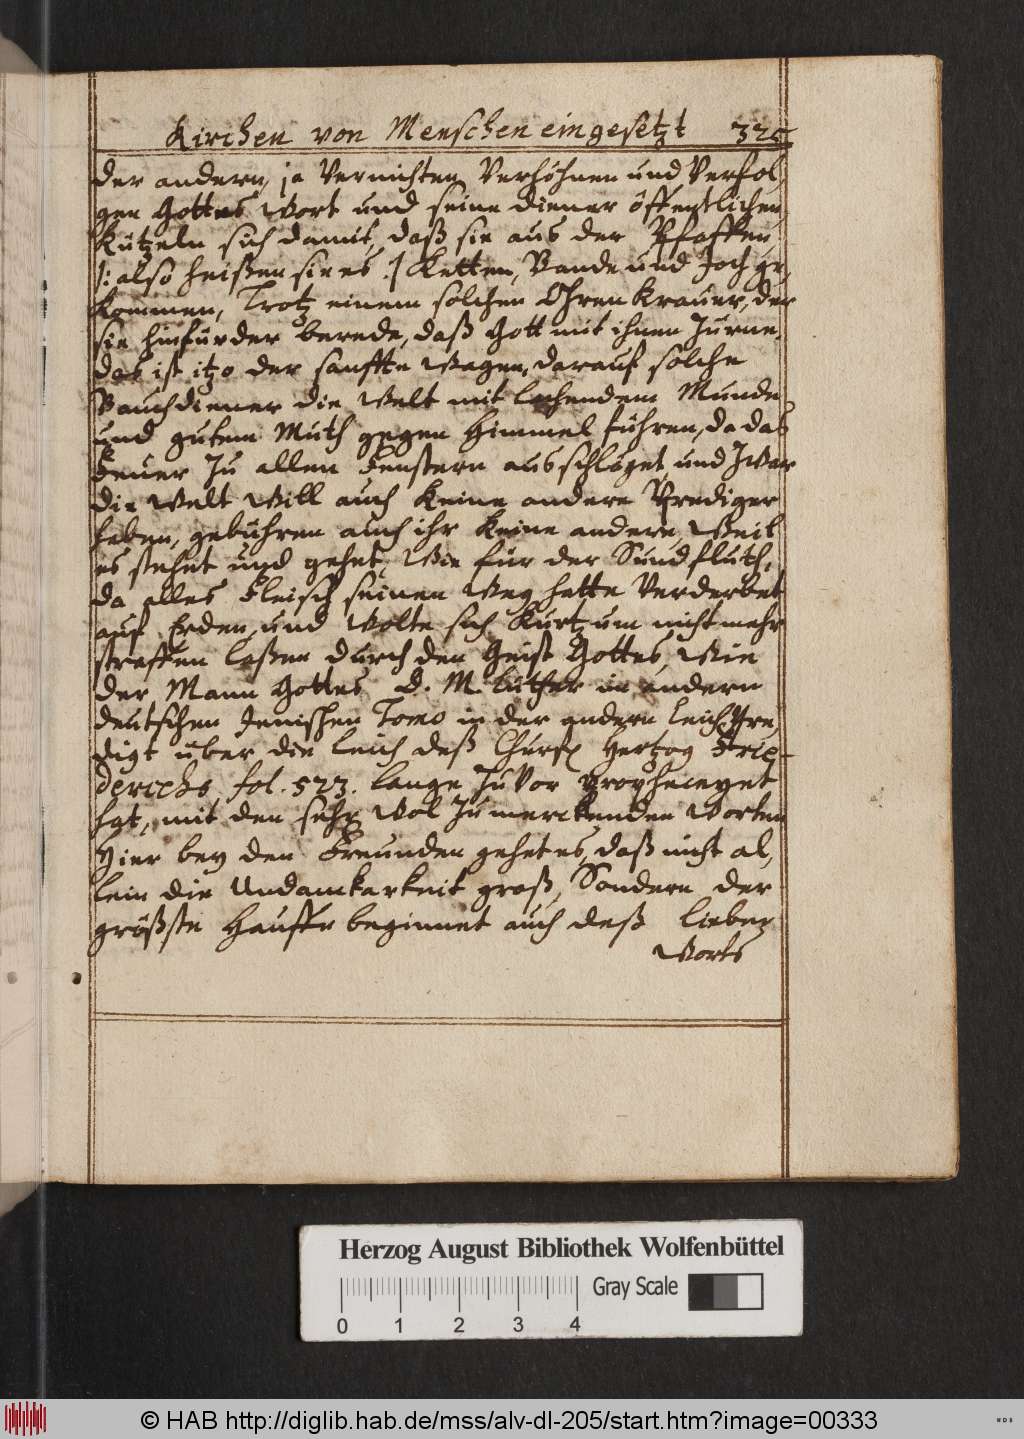 Kirchen von Menschen eingesetzt 325
der andern, ja Vernichten, Verhöhnen und Verfol,
gen Gottes Wort und seine diener öffentlichen,
Kützeln sich damit, daß sie aus der Pfaffen,
/: also heißen sie es :/ Ketten, Bande und Joch ge,
kommen, Trotz einem solchen Ohren Krauer, der
sie hinfürder berede, daß Gott mit ihnen Zürne,
das ist itzo der sanffte Wagen, darauf solche
Bauchdiener die Welt mit lachendem Munde
und gutem Muth gegen Himmel führen, da das
Feuer Zu allen Fenstern ausschläget, und Zwar
die Welt Will auch Keine andere Prediger
haben, gebühren auch ihr Keine andere, Weil
es stehet und gehet, Wie für der Sündfluth,
da alles Fleisch seinen Weg hatte Verderbet
auf Erden, und Wolte sich Kurtzum nicht mehr
straffen laßen durch den Geist Gottes, Wie
der Mann Gottes D. M. Luther im andern
deutschen Jenischen Tomo in der andern Leich Pre,
digt über die Leich deß Churf. Hertzog Frie,
derichs. fol. 523. lange Zuvor propheceyet
hat, mit den sehr Wol Zu merckenden Worten
Hier bey den Freunden gehet es, daß nicht al,
lein die Undanckarkeit groß, Sondern der
größste Hauffe beginnet auch deß lieben
Worts
Herzog August Bibliothek Wolfenbüttel
Gray Scale
0 1 2 3 4
© HAB http://diglib.hab.de/mss/alv-dl-205/start.htm?image=00333